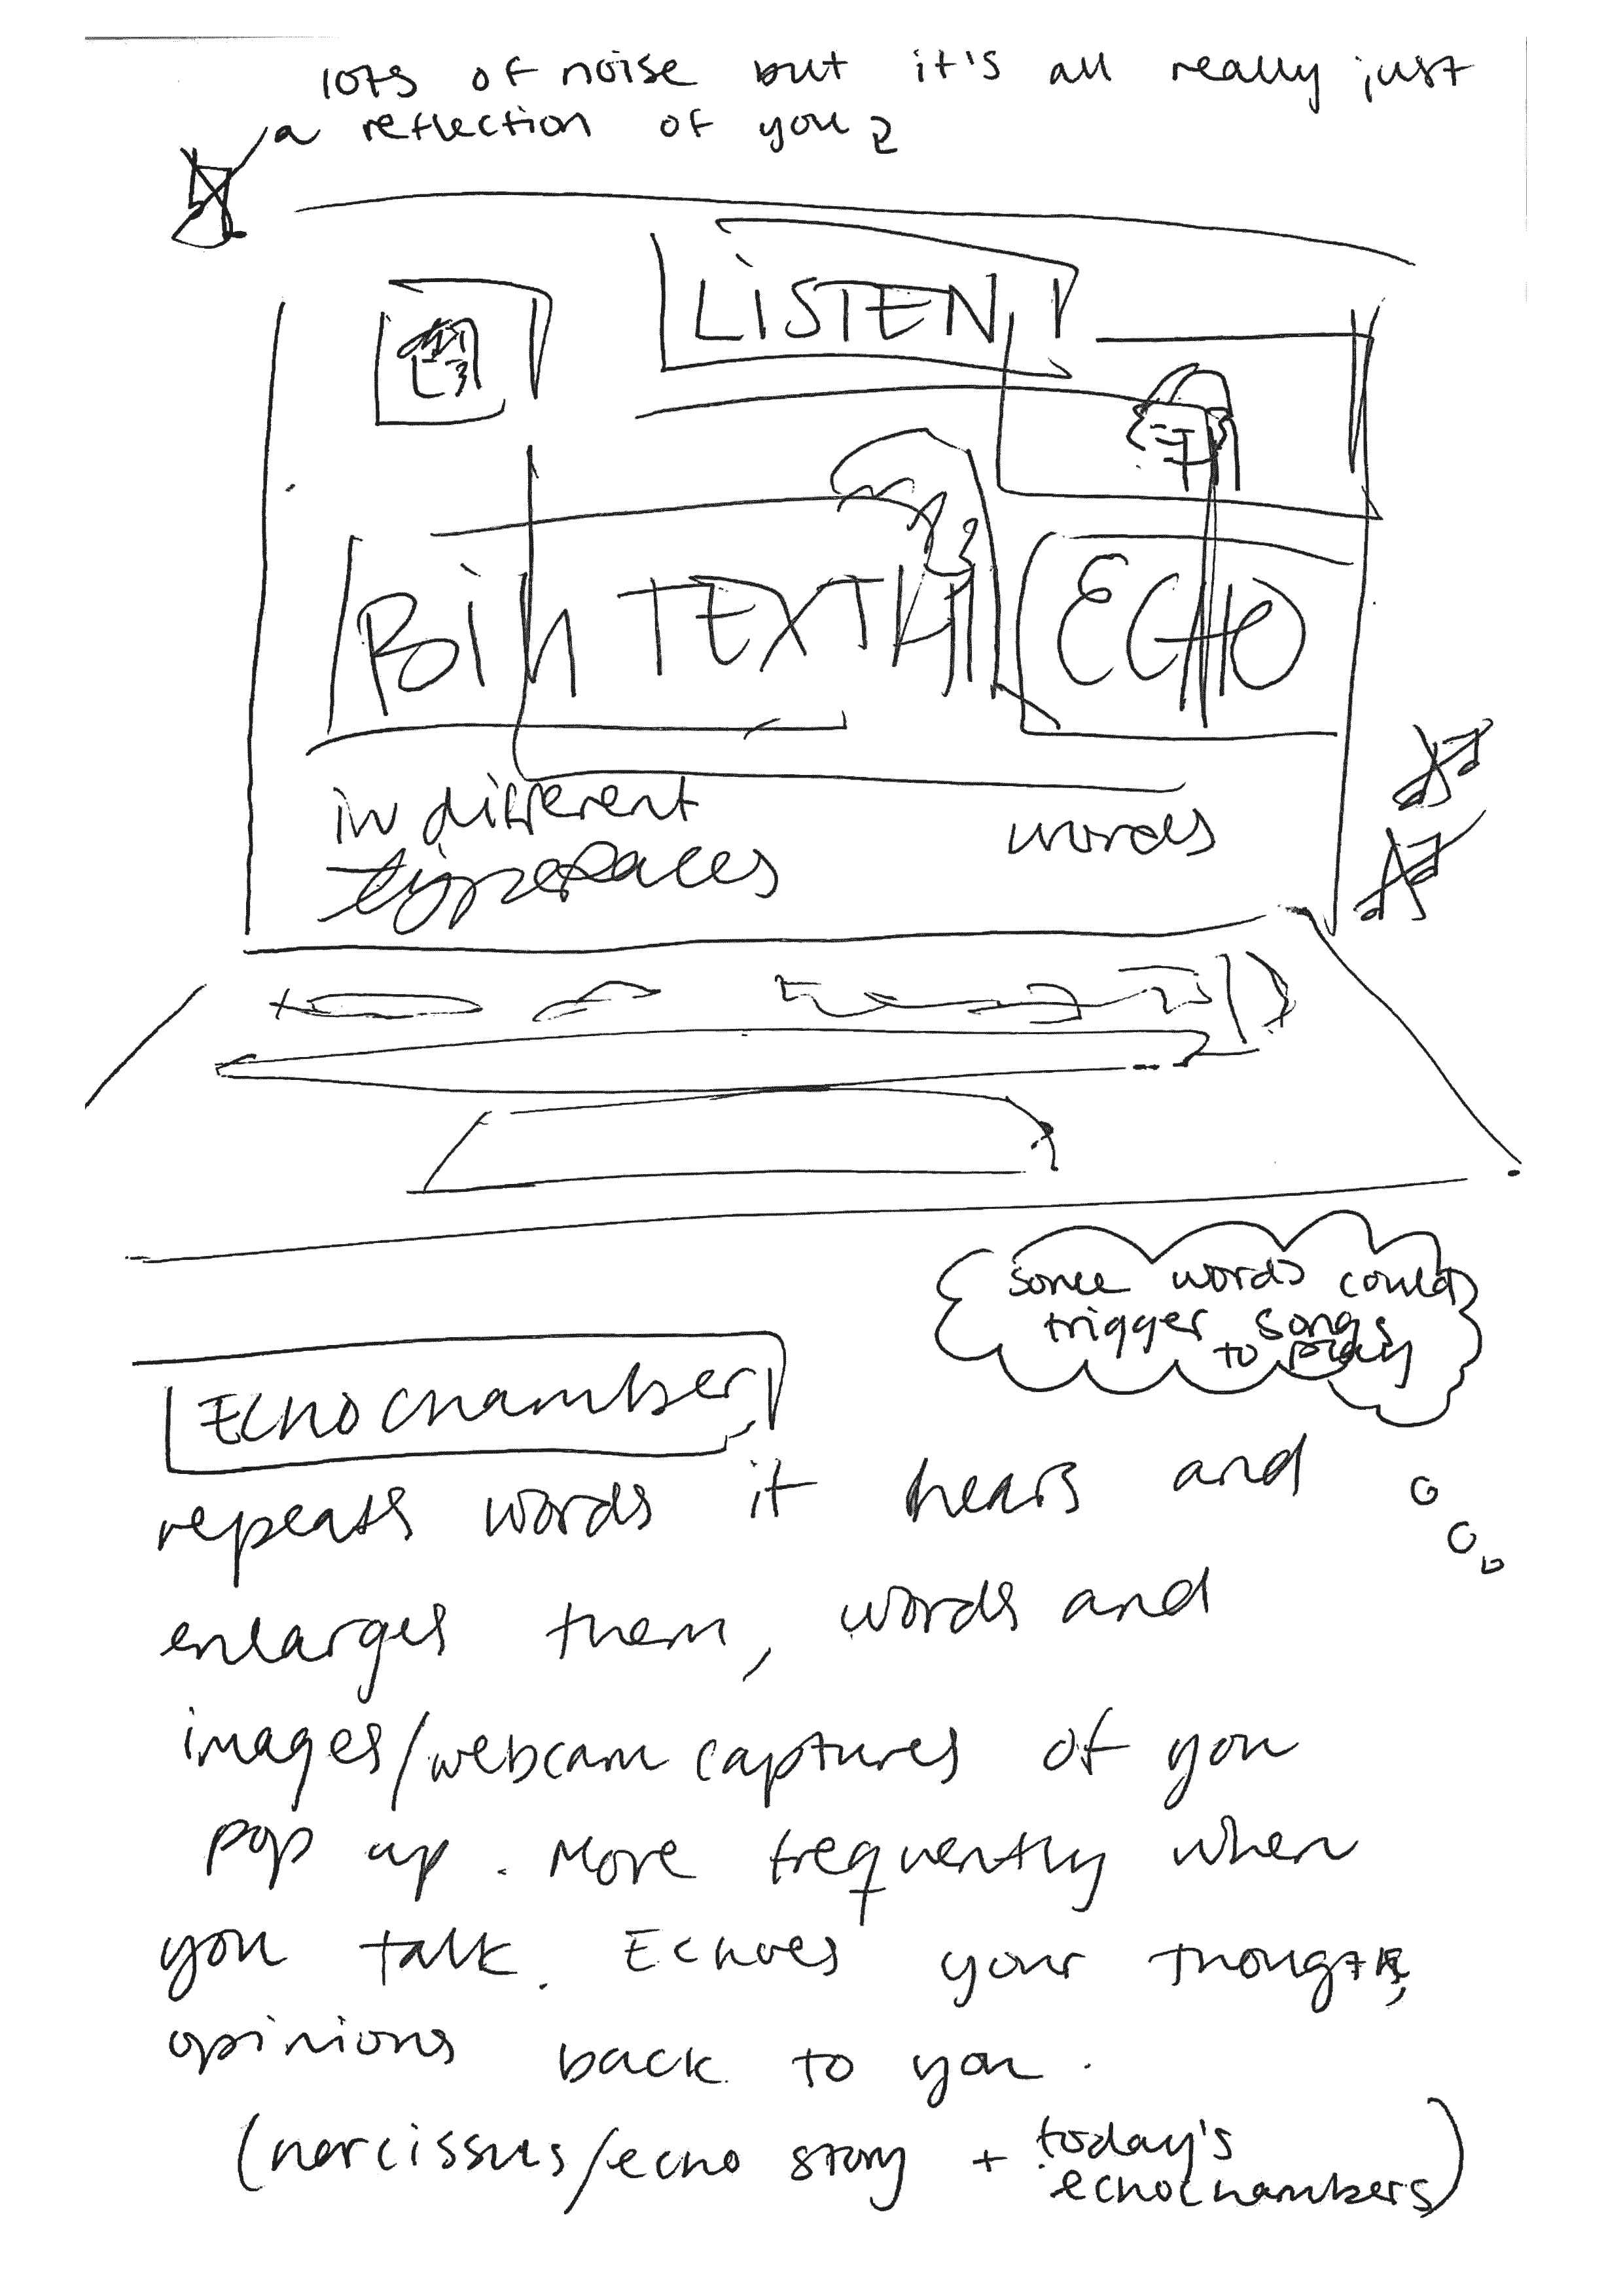 lots of noise but it's all really just
a reflection of you
LISTEN
TEXT
ECHO
in different
typefaces
words
some words could
trigger songs
to play
Echo chamber
repeats words it hears and
enlarges them, words and
images/webcam captures of you
pop up. More frequently when
you talk. Echoes your
opinions back to you.
(narcissus/echo story + today's
echochambers)